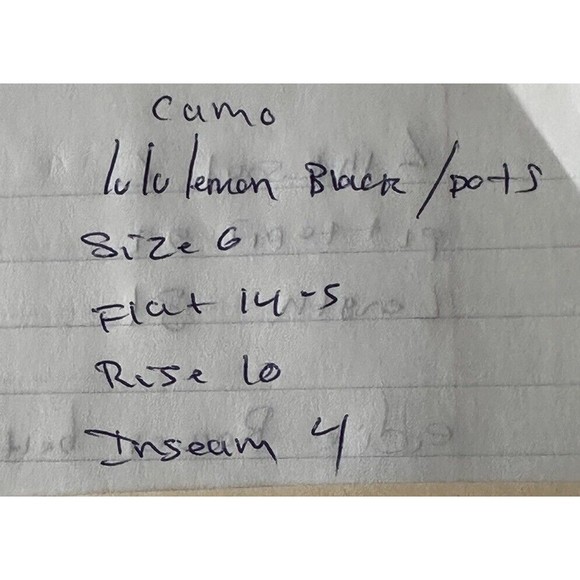 Camo
lululemon Black /pots
Size 6
Flat 14-5
Rise 10
Inseam 4